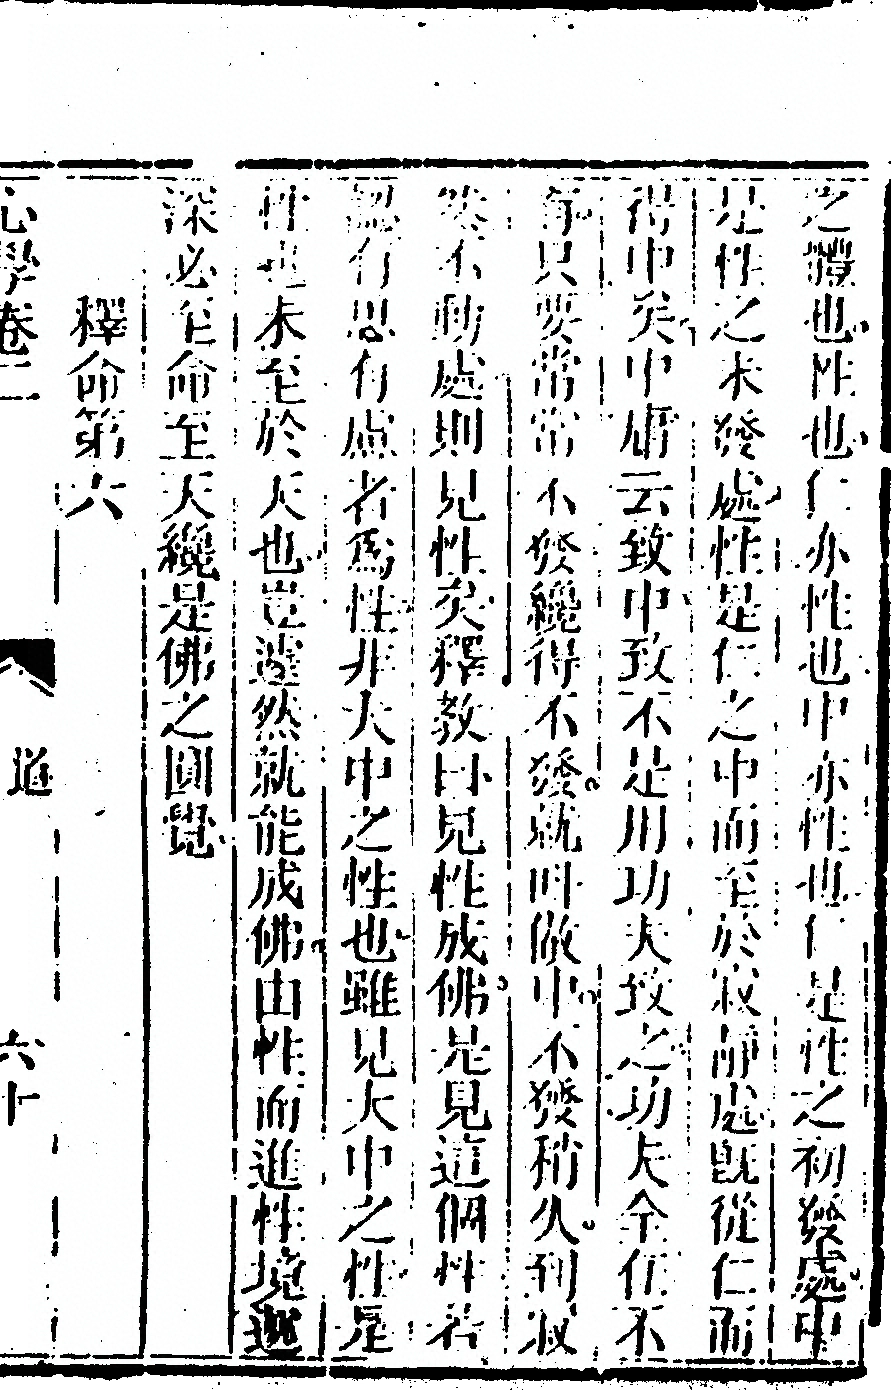 之體也性也仁亦性也中亦性也仁是性之初發處中
是性之未發處性是仁之中而至於寂靜處旣從仁而
得中矣中庸云致中致不是用功夫致之功夫全在不
有只要常常不發纔得不發就叫做中不發稍久到寂
然不動處則見性矣釋教曰見性成佛是見這個性若
認有思有慮者爲性非大中之性也雖見大中之性是
性也未至於天也豈遽然就能成佛由性而進性境
深必至命至天纔是佛之圓覺
釋命第六
心學卷二
道
六十